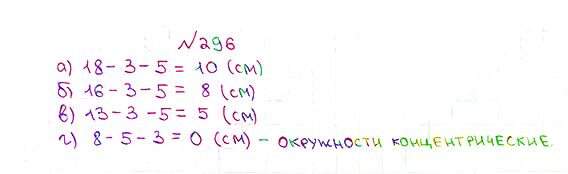 №296
а) 18 - 3 - 5 = 10 (см)
б) 16 - 3 - 5 = 8 (см)
в) 13 - 3 - 5 = 5 (см)
г) 8 - 5 - 3 = 0 (см) - окружности концентрические.